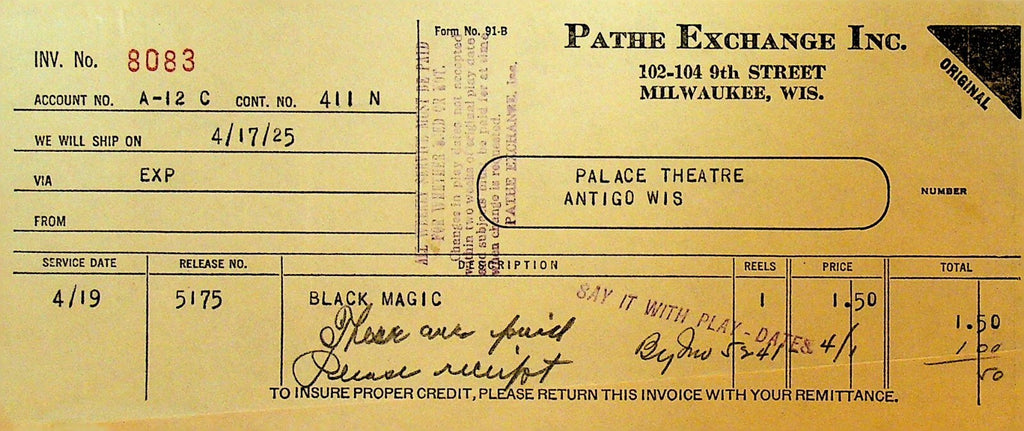 Form No. 91-B
PATHE EXCHANGE INC.
102-104 9th STREET
MILWAUKEE, WIS.
ORIGINAL
INV. No. 8083
ACCOUNT NO. A-12 C CONT. NO. 411 N
WE WILL SHIP ON 4/17/25
VIA EXP
FROM
ALL WEEKLY SERVICE MUST BE PAID
FOR WHETHER USED OR NOT.
Changes in play dates not accepted
within two weeks of original play date
and subjects must be paid for at time
when change is requested.
PATHE EXCHANGE, Inc.
PALACE THEATRE
ANTIGO WIS
NUMBER
SERVICE DATE RELEASE NO. DESCRIPTION REELS PRICE TOTAL
4/19 5175 BLACK MAGIC 1 1.50
SAY IT WITH PLAY-DATES
1.50
1 00
50
These are paid
By 4/1
Please receipt
TO INSURE PROPER CREDIT, PLEASE RETURN THIS INVOICE WITH YOUR REMITTANCE.